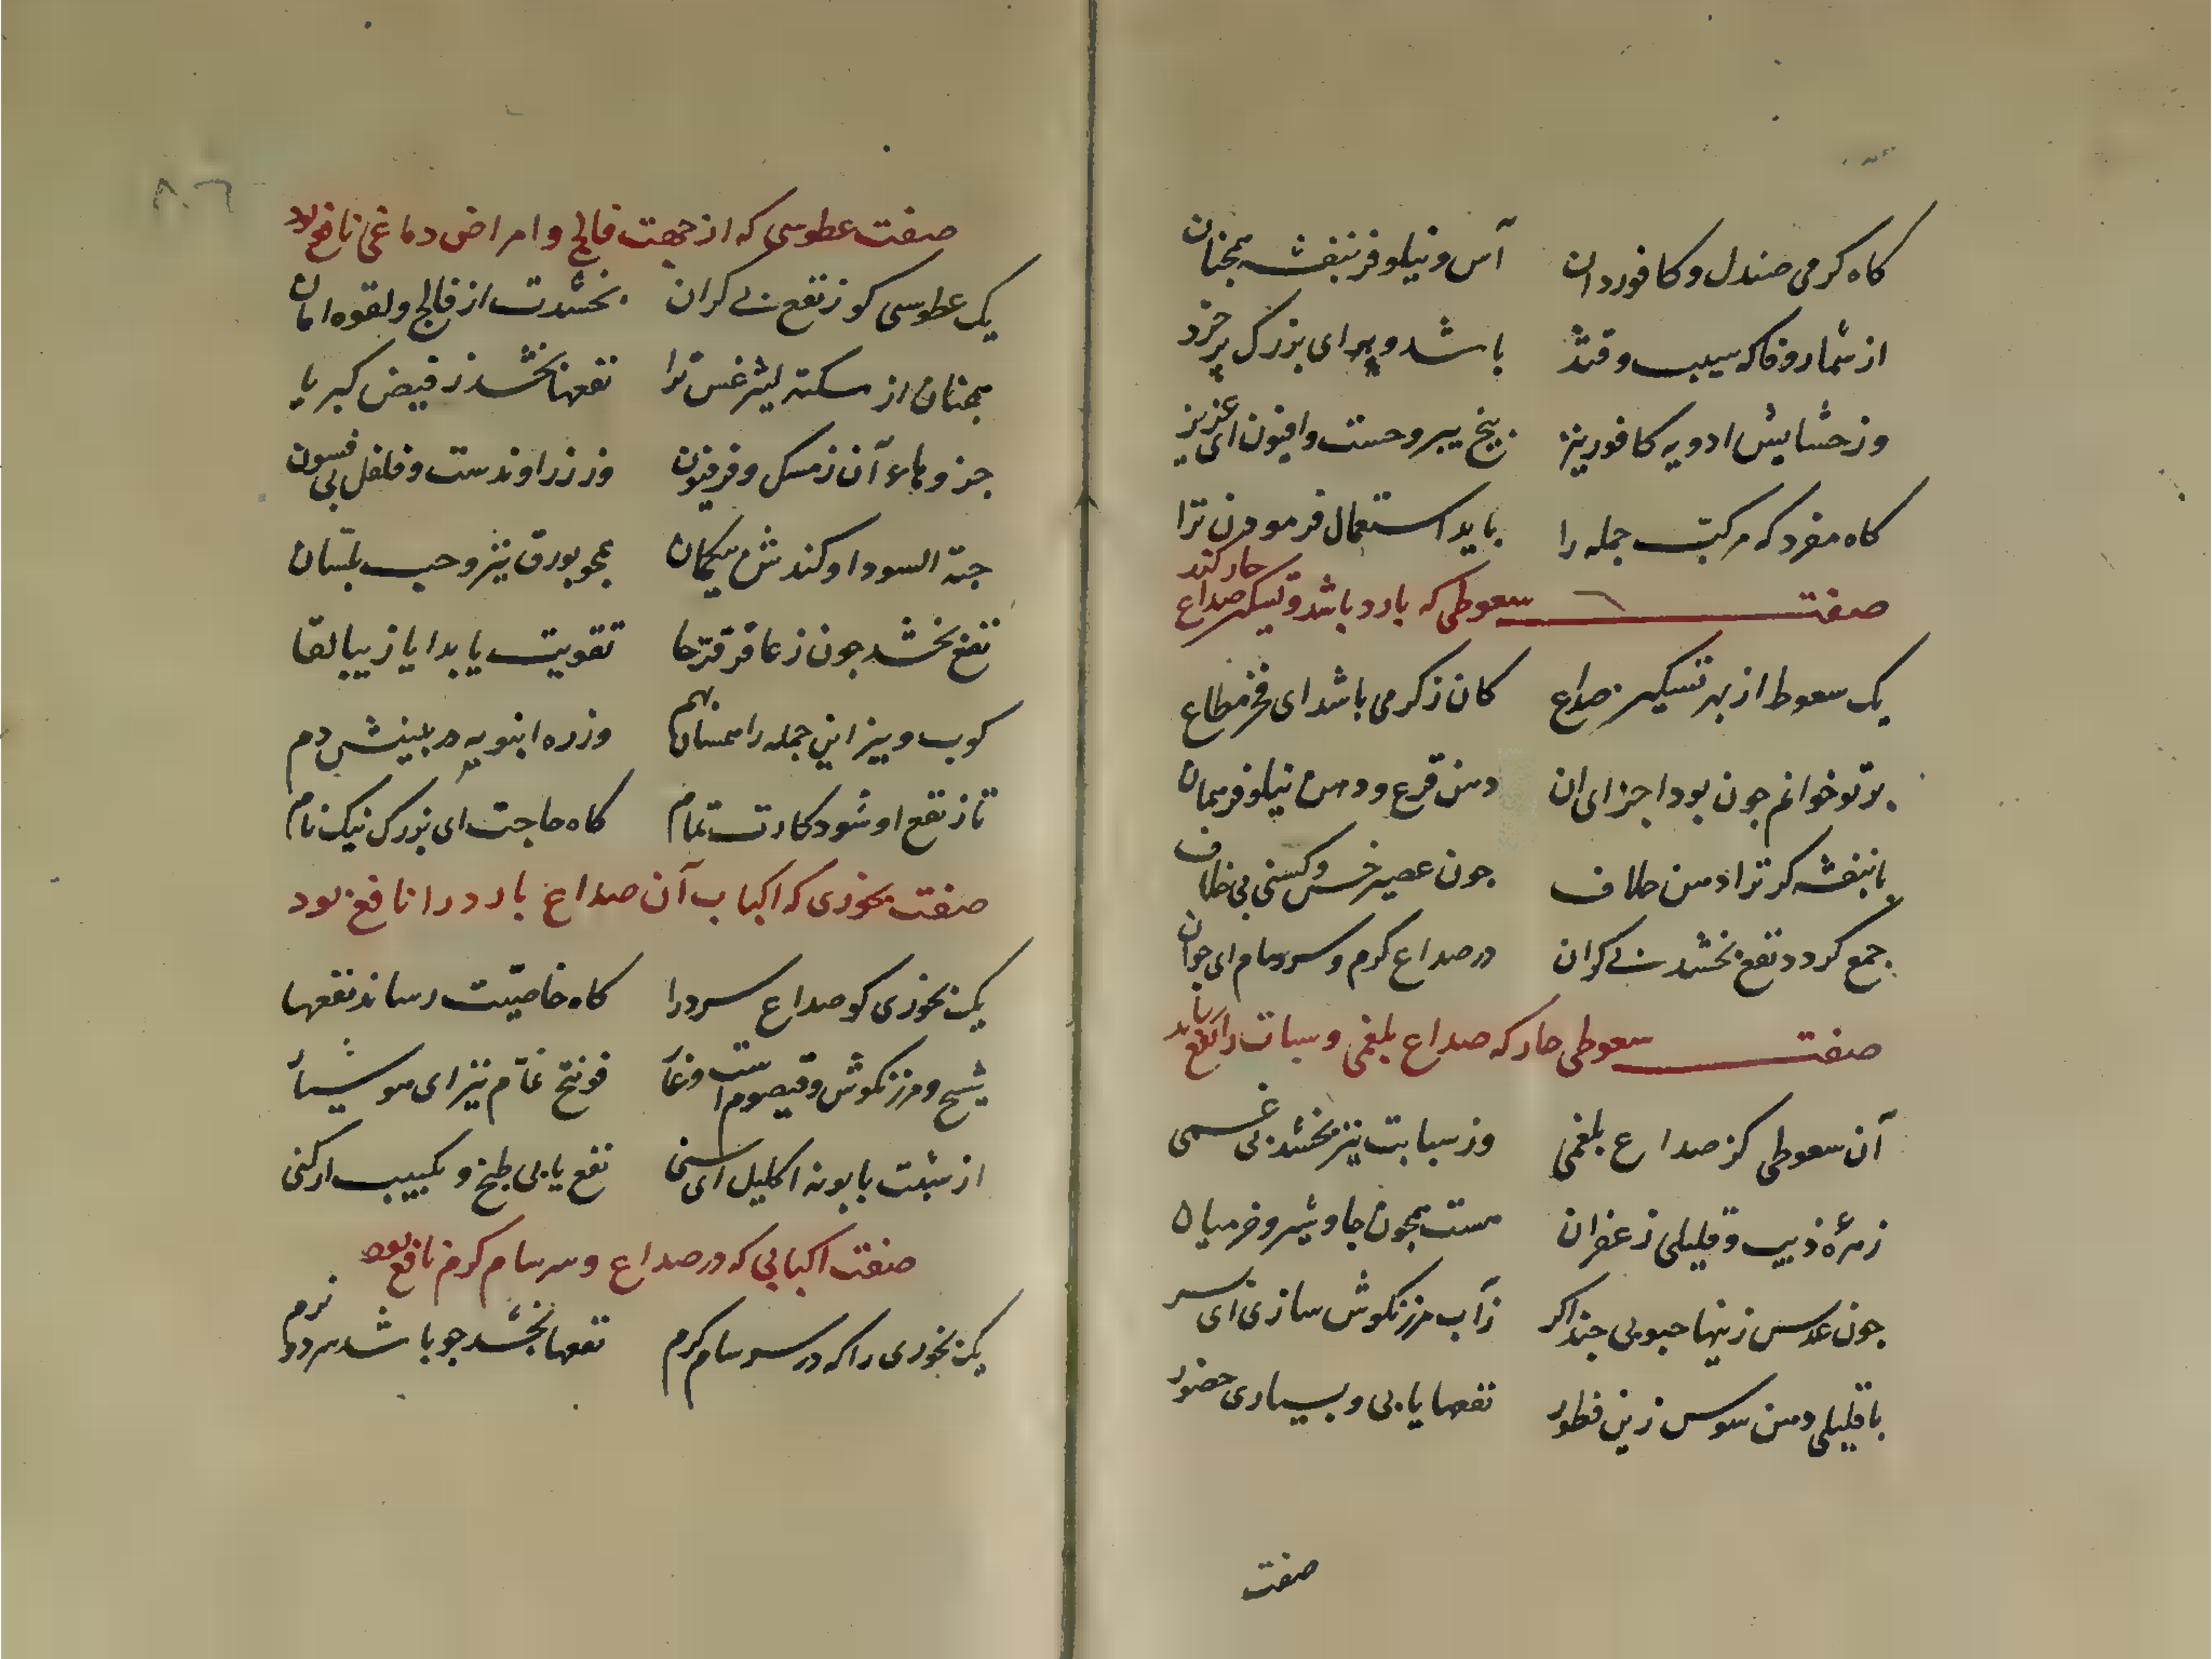 کاه کرمی صندل و کافور دان آس و نیلوفر بنفشه همجنان
از ثمار و فاکه سیب و قثد باشد و به ای بزرک پرخرد
وز حشایش ادویه کافور نیز بیخ یبروحست وافیون ای عزیز
کاه مفرد که مرکب جمله را باید استعمال فرمودن ترا
صفت سعوطی که بارد باشد و تسکین صداع حار کند
یک سعوط از بهر تسکین صداع کان ز کرمی باشد ای فخر مطاع
بر تو خوانم جون بود اجزای ان دهن قرع و دهن نیلوفر بمان
با بنفشه کر ترا دهن خلاف جون عصیر خس و کسنی بی خلاف
جمع کردد نفع بخشد بی کران در صداع کرم و سرسام ای جوان
صفت سعوطی حار که صداع بلغمی و سبات را نفع
آن سعوطی کز صداع بلغمی وز سباتت نیز بخشد بی غمی
زهرهٔ ذیب و قلیلی زعفران هست همجون جاوشیر و خرمیان
جون عدس زینها حبوبی جند اکر زآب مرزنکوش سازی ای سر
با قلیلی دهن سوس زین فطور نفعها یابی و بسیاری حضور
صفت
۸۰۶
صفت عطوسی که از جهت فالج و امراض دماغی نافع بود
یک عطوسی کو ز نفع بی کران بخشدت از فالج و لقوه امان
همجنان از سکته لیثرغس ترا نفعها بخشد ز فیض کبریا
جزوهاء آن ز مسک و فرفیون وز زراوندست و فلفل بی فسون
حبة السودا و کندش بیکمان همجو بورق نیز و حب بلسان
نفع بخشد جون ز عاقرقرحا تقویت یابد ایا زیبا لقا
کوب و بیز این جمله را همسان بهم وز ره انبوبه در بینیش دم
تا ز نفع او شود کارت تمام کاه حاجت ای بزرک نیک نام
صفت بخوری که اکباب آن صداع بارد را نافع بود
یک بخوری کو صداع سرد را کاه خاصیت رساند نفعها
شیح و مرزنکوش و قیصوم است و غار فوتنج نمّام نیز ای هوشیار
از شبت بابونه اکلیل ای سنی نفع یابی طبخ و تکبیب ار کنی
صفت اکبابی که در صداع و سرسام کرم نافع بود
یک بخوری را که در سرسام کرم نفعها بخشد جو باشد سرد و نرم